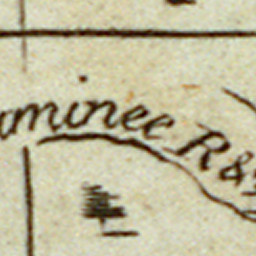 aminee R&